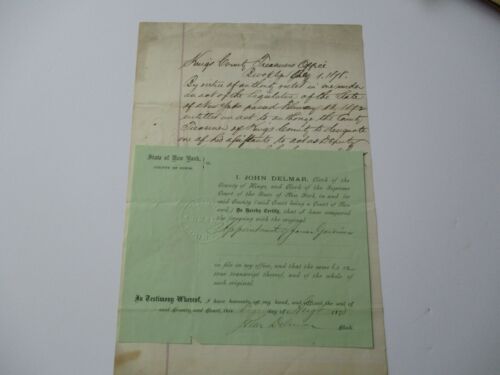 Kings County Treasurers Office
Brooklyn 1, 187
By virtue of authority vested in me under
an act of the Legislature of the State
of New York passed February 1872
entitled an act to authorize the County
Treasurer of Kings County to designate
one of his assistants to act as Deputy
State of New York,
COUNTY OF KINGS, ss.
I, JOHN DELMAR, Clerk of the
County of Kings, and Clerk of the Supreme
Court of the State of New York, in and for
said County (said Court being a Court of Rec-
ord,) Do Hereby Certify, that I have compared
the foregoing with the original
Appointment of James
on file in my office, and that the same is a
true transcript thereof, and of the whole of
such original.
In Testimony Whereof, I have hereunto set my hand, and affixed the seal of
said County and Court, this day of Sept 187
John Delmar Clerk.